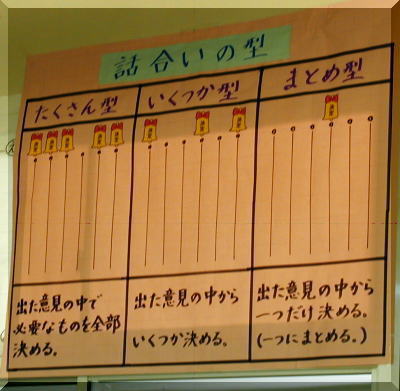 話合いの型
たくさん型
いくつか型
まとめ型
出た意見の中で
必要なものを全部
決める。
出た意見の中から
いくつか決める。
出た意見の中から
一つだけ決める。
(一つにまとめる。)